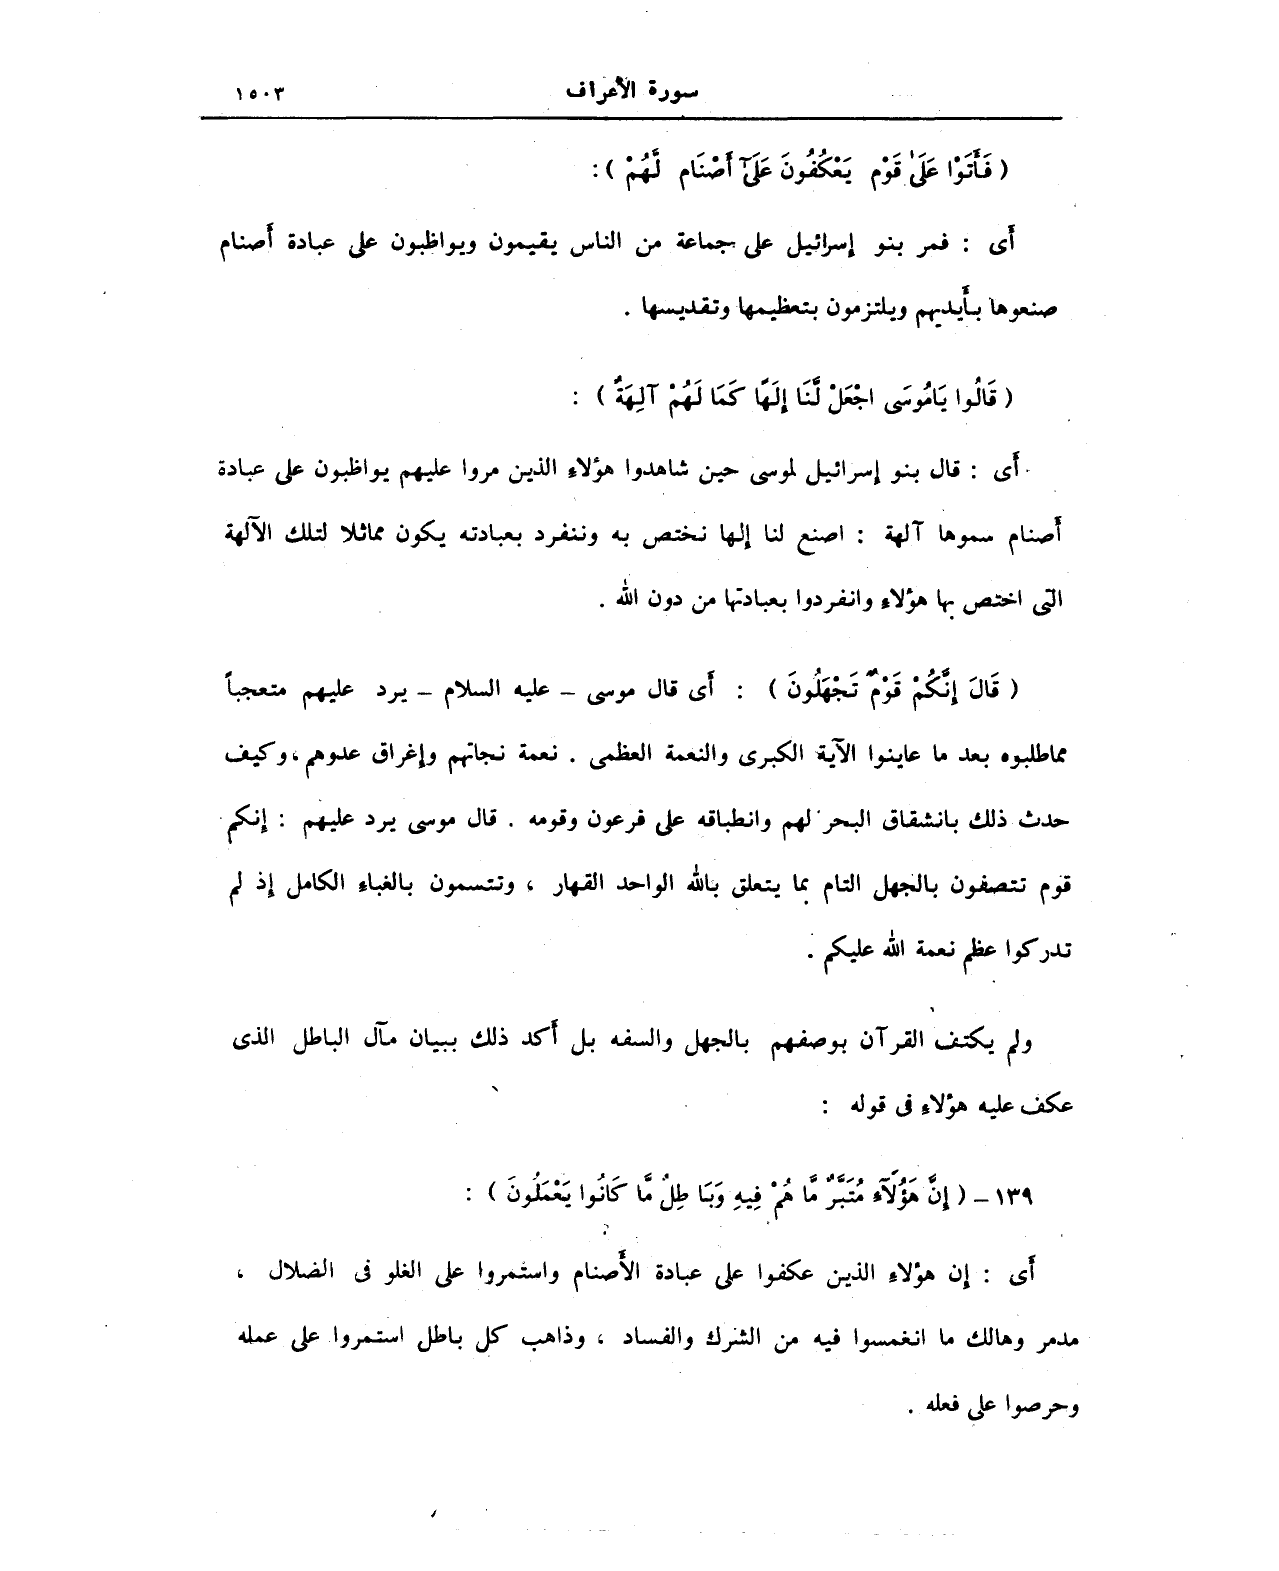 سورة الأعراف ١٥٠٣
( فَأَتَوْا عَلَىٰ قَوْمٍ يَعْكُفُونَ عَلَىٰٓ أَصْنَامٍ لَّهُمْ ) :
أى : فمر بنو إسرائيل على جماعة من الناس يقيمون ويواظبون على عبادة أصنام
صنعوها بأيديهم ويلتزمون بتعظيمها وتقديسها .
( قَالُوا يَامُوسَى اجْعَلْ لَّنَا إِلَهًا كَمَا لَهُمْ آلِهَةٌ ) :
أى : قال بنو إسرائيل لموسى حين شاهدوا هؤلاء الذين مروا عليهم يواظبون على عبادة
أصنام سموها آلهة : اصنع لنا إلها نختص به وننفرد بعبادته يكون مماثلا لتلك الآلهة
التى اختص بها هؤلاء وانفردوا بعبادتها من دون الله .
( قَالَ إِنَّكُمْ قَوْمٌ تَجْهَلُونَ ) : أى قال موسى – عليه السلام – يرد عليهم متعجباً
مماطلبوه بعد ما عاينوا الآية الكبرى والنعمة العظمى . نعمة نجاتهم وإغراق عدوهم ، وكيف
حدث ذلك بانشقاق البحر لهم وانطباقه على فرعون وقومه . قال موسى يرد عليهم : إنكم
قوم تتصفون بالجهل التام بما يتعلق بالله الواحد القهار ، وتتسمون بالغباء الكامل إذ لم
تدركوا عظم نعمة الله عليكم .
ولم يكتف القرآن بوصفهم بالجهل والسفه بل أكد ذلك ببيان مآل الباطل الذى
عكف عليه هؤلاء فى قوله :
١٣٩ – ( إِنَّ هَؤُلَآءِ مُتَبَّرٌ مَّا هُمْ فِيهِ وَبَاطِلٌ مَّا كَانُوا يَعْمَلُونَ ) :
أى : إن هؤلاء الذين عكفوا على عبادة الأصنام واستمروا على الغلو فى الضلال ،
مدمر وهالك ما انغمسوا فيه من الشرك والفساد ، وذاهب كل باطل استمروا على عمله
وحرصوا على فعله .